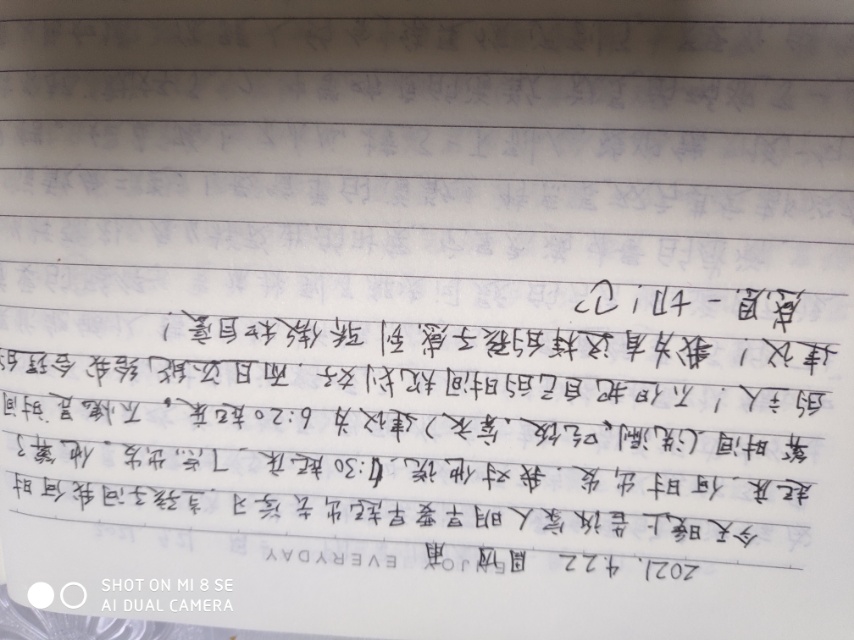 ENJOY EVERYDAY
2021. 4.22 周四 雨
今天晚上告诉家人明早要早起出去学习,当孩子问我何时
起床,何时出发,我对他说:6:30起床,7点出发。他算了
算时间(洗漱、吃饭、穿衣)建议为6:20起床。不愧是时间
的主人!不但把自己的时间规划好,而且还能给我合理的
建议!我为有这样的孩子感到骄傲和自豪!
感恩一切!
SHOT ON MI 8 SE
AI DUAL CAMERA